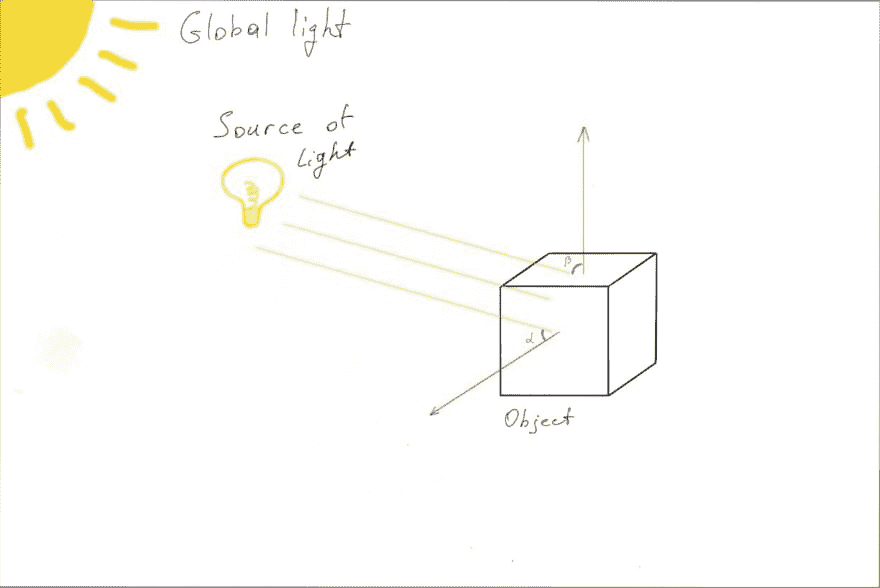 Global light
Source of
Light
β
α
Object